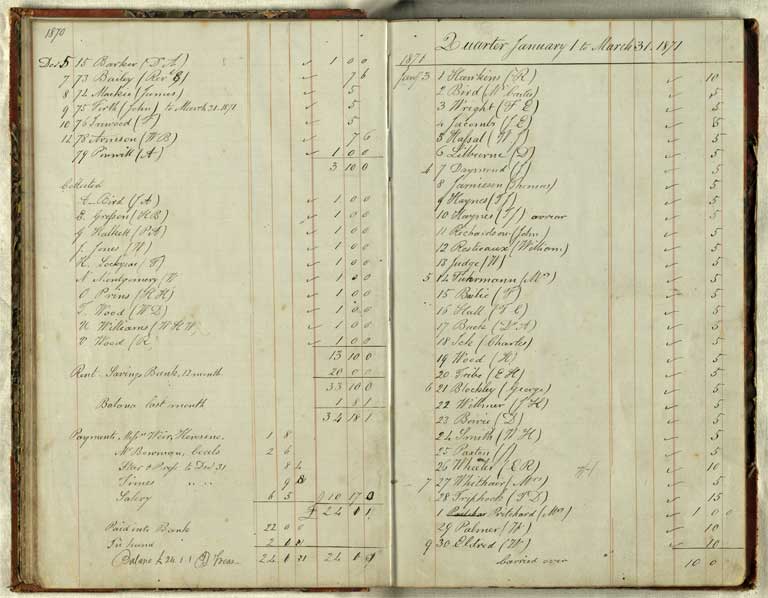 1870
Dec 5 15 Barker (D A) 1 0 0
7 73 Bailey (Revd 7 6
8 74 Mackie (James) 5
9 75 Firth (John) to March 31. 1871 5
10 76 Inwood (F) 5
12 78 Armson (W B) 7 6
79 Pinwill (A) 1 0 0
3 10 0
Collected
Bird (J A) 1 0 0
E. (H B) 1 0 0
G Halkett (P A) 1 0 0
J. Jones (W) 1 0 0
K. Lockyear (F) 1 0 0
N Montgomery (V 1 0 0
O Prins (R H) 1 0 0
T. Wood (W D) 1 0 0
U Williams (W H W) 1 0 0
V Wood (R) 1 0 0
13 10 0
Rent Savings Bank, 12 month 20 0 0
33 10 0
Balance last month 1 8 1
34 18 1
Payments, Messrs Weir, Hewson 1 8
Mr Bowman, Coals 2 6
Star & Press to Dec 31 8 4
Times " " 9
Salary 6 5 10 17 0
£ 24 1 1
Paid into Bank 22 0 0
In hand 2 1 1
Balance £ 24.1.1 24 1 1 24 1 1
Quarter January 1 to March 31. 1871
1871
Jany 3 1 Hawkins (R) 10
2 Bird (W Carter) 5
3 Wright (F E) 5
4 Jacombs (J E) 5
5 Hassal (W J) 5
6 Lilburne (D) 5
4 7 Daymond (J) 5
8 Jamieson (Thomas) 5
9 Haynes (T) 5
10 Haynes (T) arrear 5
11 Richardson (John) 5
12 Restieaux (William) 5
13 Judge (W) 5
5 14 Fuhrmann (Mrs) 5
15 (F) 5
16 Hall (T C) 5
17 Buck (D A) 5
18 (Charles) 5
19 Wood (H) 5
20 Tribe (E H) 5
6 21 Blockley (George) 5
22 Willmer (J H) 5
23 Bowie (D) 5
24 Smith (W H) 5
25 Paxton (J) 5
26 Wheeler (E R) 10
7 27 Whithair (Mrs) 5
28 Triphook (T D) 15
1 Pritchard (Mrs) 1 0 0
29 Palmer (W) 10
9 30 Eldred (W) 10
Carried over 10 0